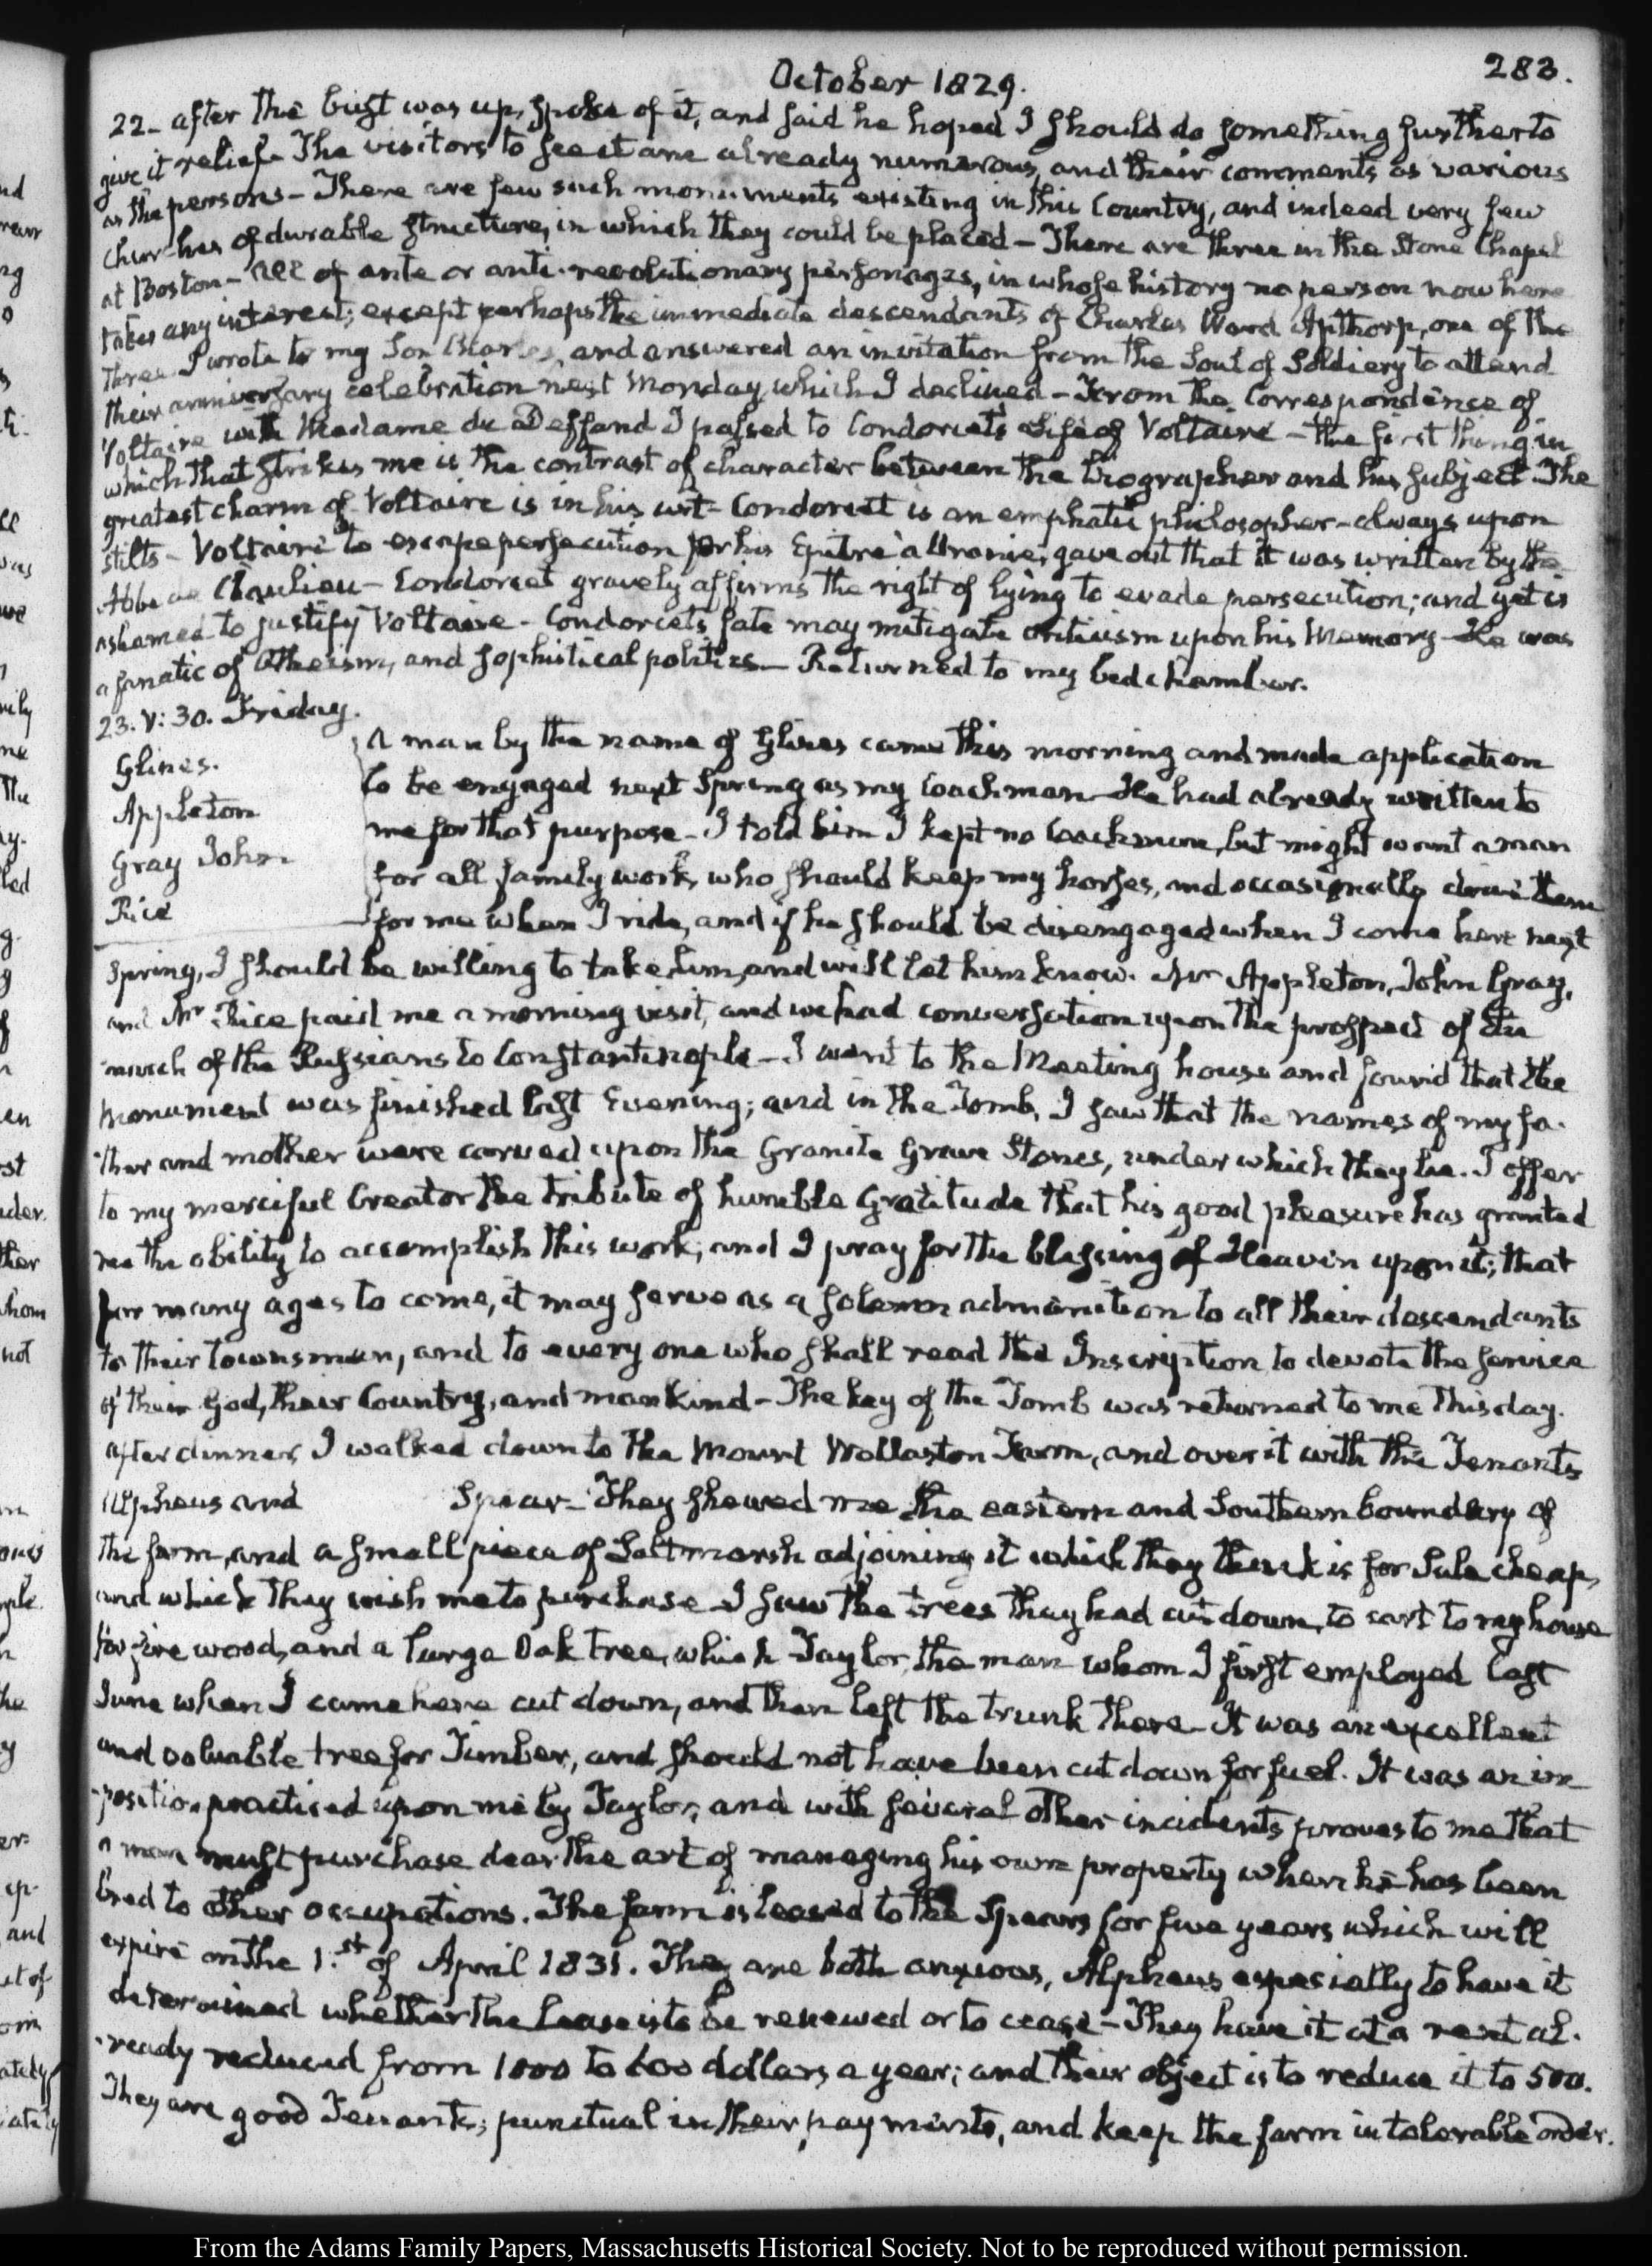 October 1829.
283.
22- after the bust was up, spoke of it, and said he hoped I should do something further to
give it relief- The visitors to see it are already numerous, and their comments as various
as the persons- There are few such monuments existing in this Country, and indeed very few
churches of durable structure, in which they could be placed- There are three in the Stone Chapel
at Boston- All of ante or anti-revolutionary personages, in whose history no person now here
takes any interest; except perhaps the immediate descendants of Charles Ward Apthorp, one of the
three. I wrote to my Son Charles, and answered an invitation from the Soul of Soldiery to attend
their anniversary celebration next Monday, which I declined- From the Correspondence of
Voltaire with Madame du Deffand I passed to Condorcet's Life of Voltaire- the first thing in
which that strikes me is the contrast of character between the biographer and his subject- The
greatest charm of Voltaire is in his wit- Condorcet is an emphatic philosopher- always upon
stilts- Voltaire to escape persecution for his Epitre à Uranie, gave out that it was written by the
Abbé de Chaulieu- Condorcet gravely affirms the right of lying to evade persecution; and yet is
ashamed to justify Voltaire- Condorcets fate may mitigate criticism upon his Memory- He was
a fanatic of Atheism, and sophistical politics- Returned to my bedchamber.
23. V: 30. Friday.
Glines.
Appleton
Gray John
Rice
A man by the name of Glines came this morning and made application
to be engaged next Spring as my Coachman- He had already written to
me for that purpose- I told him I kept no Coachman, but might want a man
for all family work, who should keep my horses, and occasionally drive them
for me when I ride, and if he should be disengaged when I come here next
Spring, I should be willing to take him, and will let him know. Mr Appleton, John Gray,
and Mr Rice paid me a morning visit, and we had conversation upon the prospect of the
march of the Russians to Constantinople- I went to the Meeting house and found that the
Monument was finished last Evening; and in the Tomb, I saw that the names of my fa-
-ther and mother were carved upon the Granite Grave Stones, under which they lie. I offer
to my merciful Creator the tribute of humble Gratitude that his good pleasure has granted
me the ability to accomplish this work; and I pray for the blessing of Heaven upon it; that
for many ages to come, it may serve as a solemn admonition to all their descendants
to their townsmen, and to every one who shall read the Inscription to devote the service
of their God, their Country, and mankind- The key of the Tomb was returned to me this day.
After dinner I walked down to the Mount Wollaston Farm, and over it with the Tenants
Alpheus and Spear- They shewed me the eastern and Southern boundary of
the farm, and a small piece of Saltmarsh adjoining it which they think is for Sale cheap,
and which they wish me to purchase- I saw the trees they had cut down, to cart to my house
for fire wood, and a large Oak tree, which Taylor, the man whom I first employed last
June when I came here cut down, and then left the trunk there- It was an excellent
and valuable tree for Timber, and should not have been cut down for fuel. It was an im
-position practiced upon me by Taylor, and with several other incidents proves to me that
a man must purchase dear the art of managing his own property when he has been
bred to other occupations. The farm is leased to the Spears for five years which will
expire on the 1.st of April 1831. They are both anxious, Alpheus especially to have it
determined whether the lease is to be renewed or to cease- They have it at a rent al-
-ready reduced from 1000 to 600 dollars a year; and their object is to reduce it to 500.
They are good Tenants; punctual in their payments, and keep the farm in tolerable order.
From the Adams Family Papers, Massachusetts Historical Society. Not to be reproduced without permission.